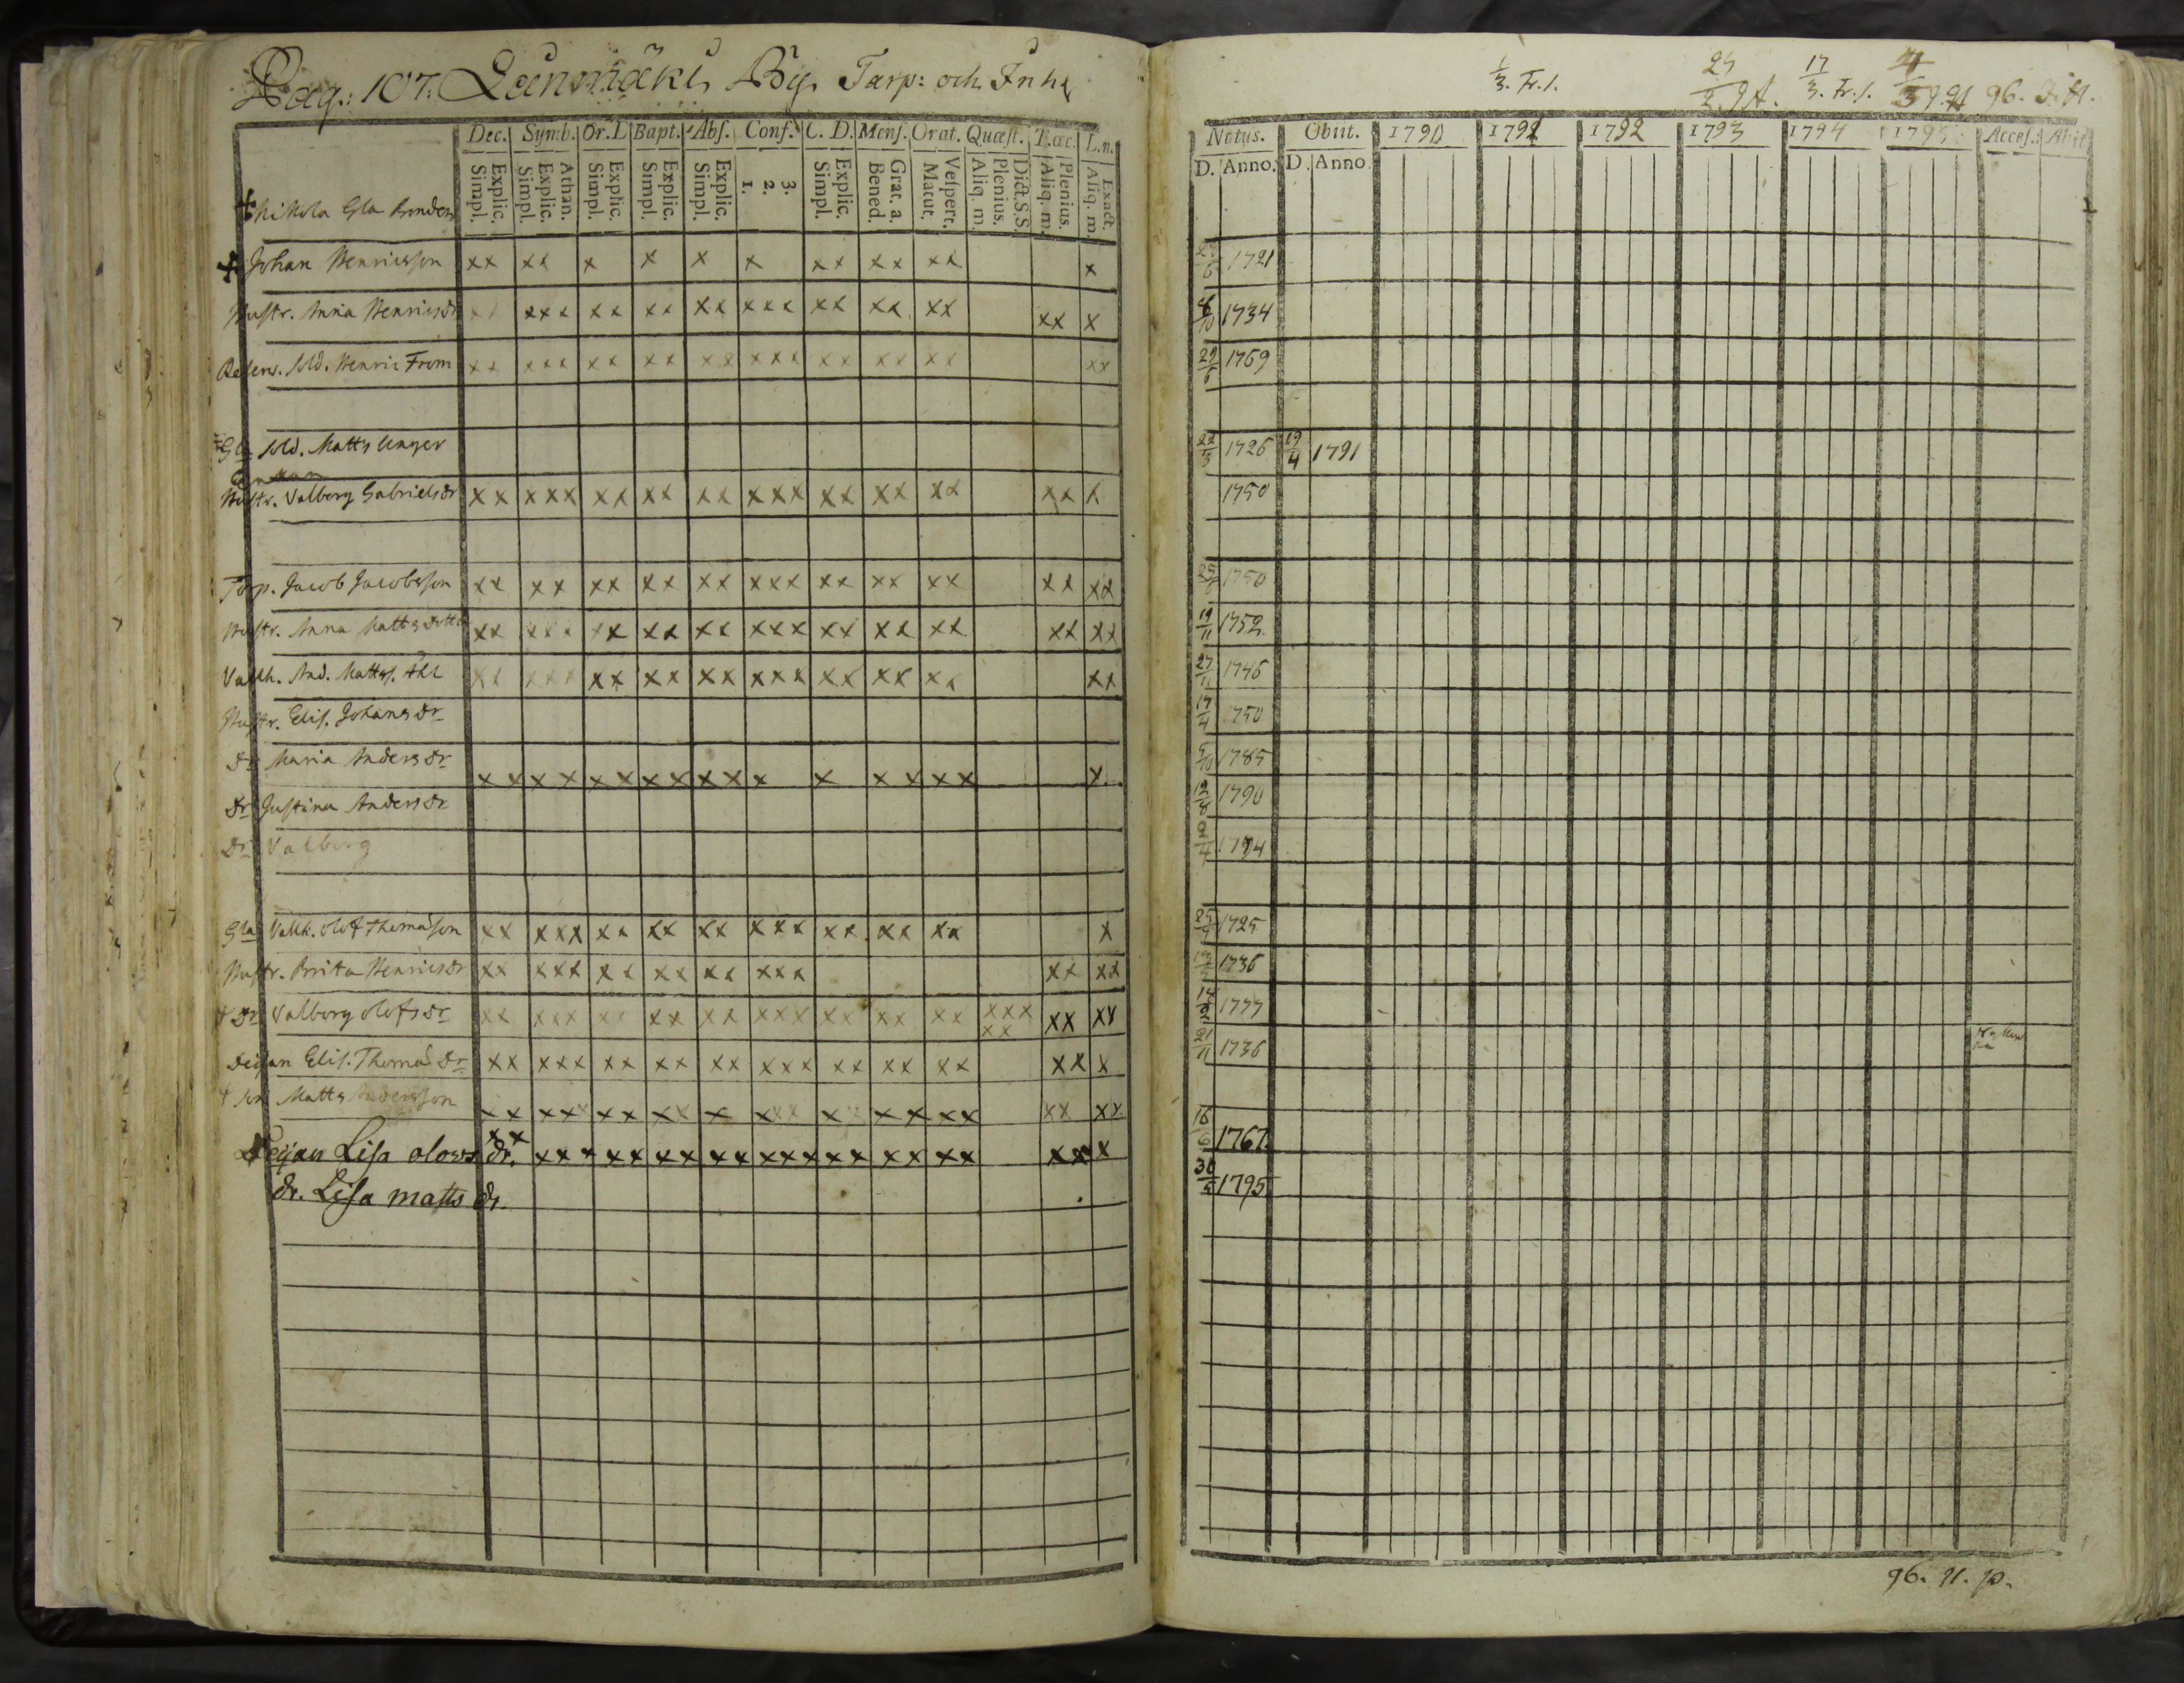 Pag.: 107. Launmäki By, Tarp: och Inh
Dec. Symb. Or. D Bapt. Abs. Conf. C. D. Mens. Orat. Quæst. T. œc. L. n.
Explic. Simpl. Athan. Explic. Simpl. Explic. Simpl. Explic. Simpl. Explic. Simpl. 3. 2. 1. Explic. Simpl. Grat. a. Bened. Vespert. Matut. Dict. S.S. Plenius. Aliq. m. Plenius. Aliq. m. Exact. Aliq. m.
Mikola Gla Bonden
Johan Henricsson xx xx x x x x xx xx xx x
Hustr. Anna Henricsdr xx xxx xx xx xx xxx xx xx xx xx x
Reserv. Sold. Henric From xx xxx xx xx xx xxx xx xx xx xx
Gla Sold. Matts Unger
Enkan
Hustr. Valborg Gabrielsdr xx xxx xx xx xx xxx xx xx xx xx x
Torp. Jacob Jacobsson xx xx xx xx xx xxx xx xx xx xx xx
Hustr. Anna Matts dotter xx xxx xx xx xx xxx xx xx xx xx xx
Vallh. And. Matts. Ahl xx xxx xx xx xx xxx xx xx xx xx
Hustr. Elis. Johans dr
dr Maria Anders dr xx xx xx xx xx x x xx xx x
dr Justina Anders dr
Dr Valborg
Gla Vallh. Olof Thomasson xx xxx xx xx xx xxx xx xx xx x
Hustr. Brita Henricsdr xx xxx xx xx xx xxx xx xx
† Dr Valborg Olofs dr xx xxx xx xx xx xxx xx xx xx xxx xx xx xx
Deijan Elis. Thomas dr xx xxx xx xx xx xxx xx xx xx xx x
† son Matts Andersson xx xxx xx xx x xxx x xx xx xx xx
Deijan Lisa olows dr. xx xxx xx xx xx xxx xx xx xx xx x
dr. Lisa matts dr.
1/3. Fr. 1. 24/2. 17/3. Fr. 1. 96.
Natus. Obiit. 1790 1791 1792 1793 1794 1795 Acces. Abiit
D. Anno. D. Anno.
1721
1734
29/6 1769
22/3 1726 19/4 1791
1750
1750
19/11 1752
27/11 1746
17/4 1750
5/10 1785
1790
2/4 1794
1725
1736
1777
21/11 1736
16/6 1767
30/5 1795
96. 11. p.